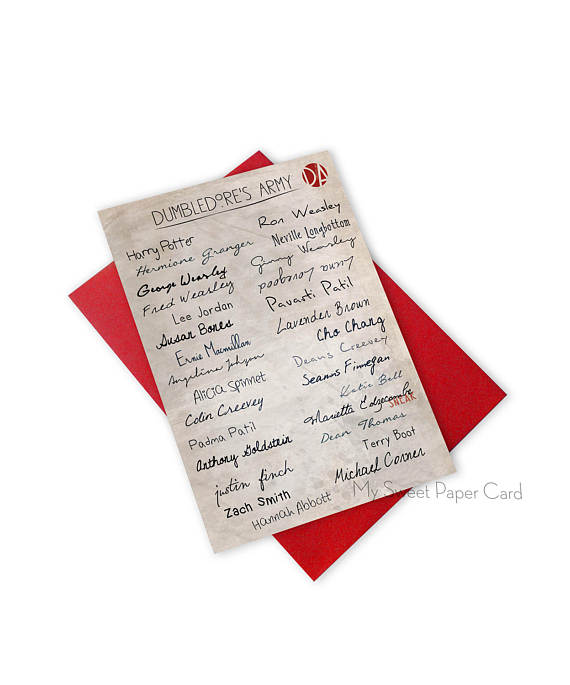 DUMBLEDORE'S ARMY
DA
Harry Potter
Hermione Granger
George Weasley
Fred Weasley
Lee Jordan
Susan Bones
Ernie Macmillan
Angelina Johnson
Alicia Spinnet
Colin Creevey
Padma Patil
Anthony Goldstein
justin finch
Zach Smith
Hannah Abbott
Ron Weasley
Neville Longbottom
Ginny Weasley
Luna Lovegood
Pavasti Patil
Lavender Brown
Cho Chang
Deans Creevey
Seanus Finnegan
Katie Bell
Marietta Edgecombe
SNEAK
Dean Thomas
Terry Boot
Michael Corner
My Sweet Paper Card